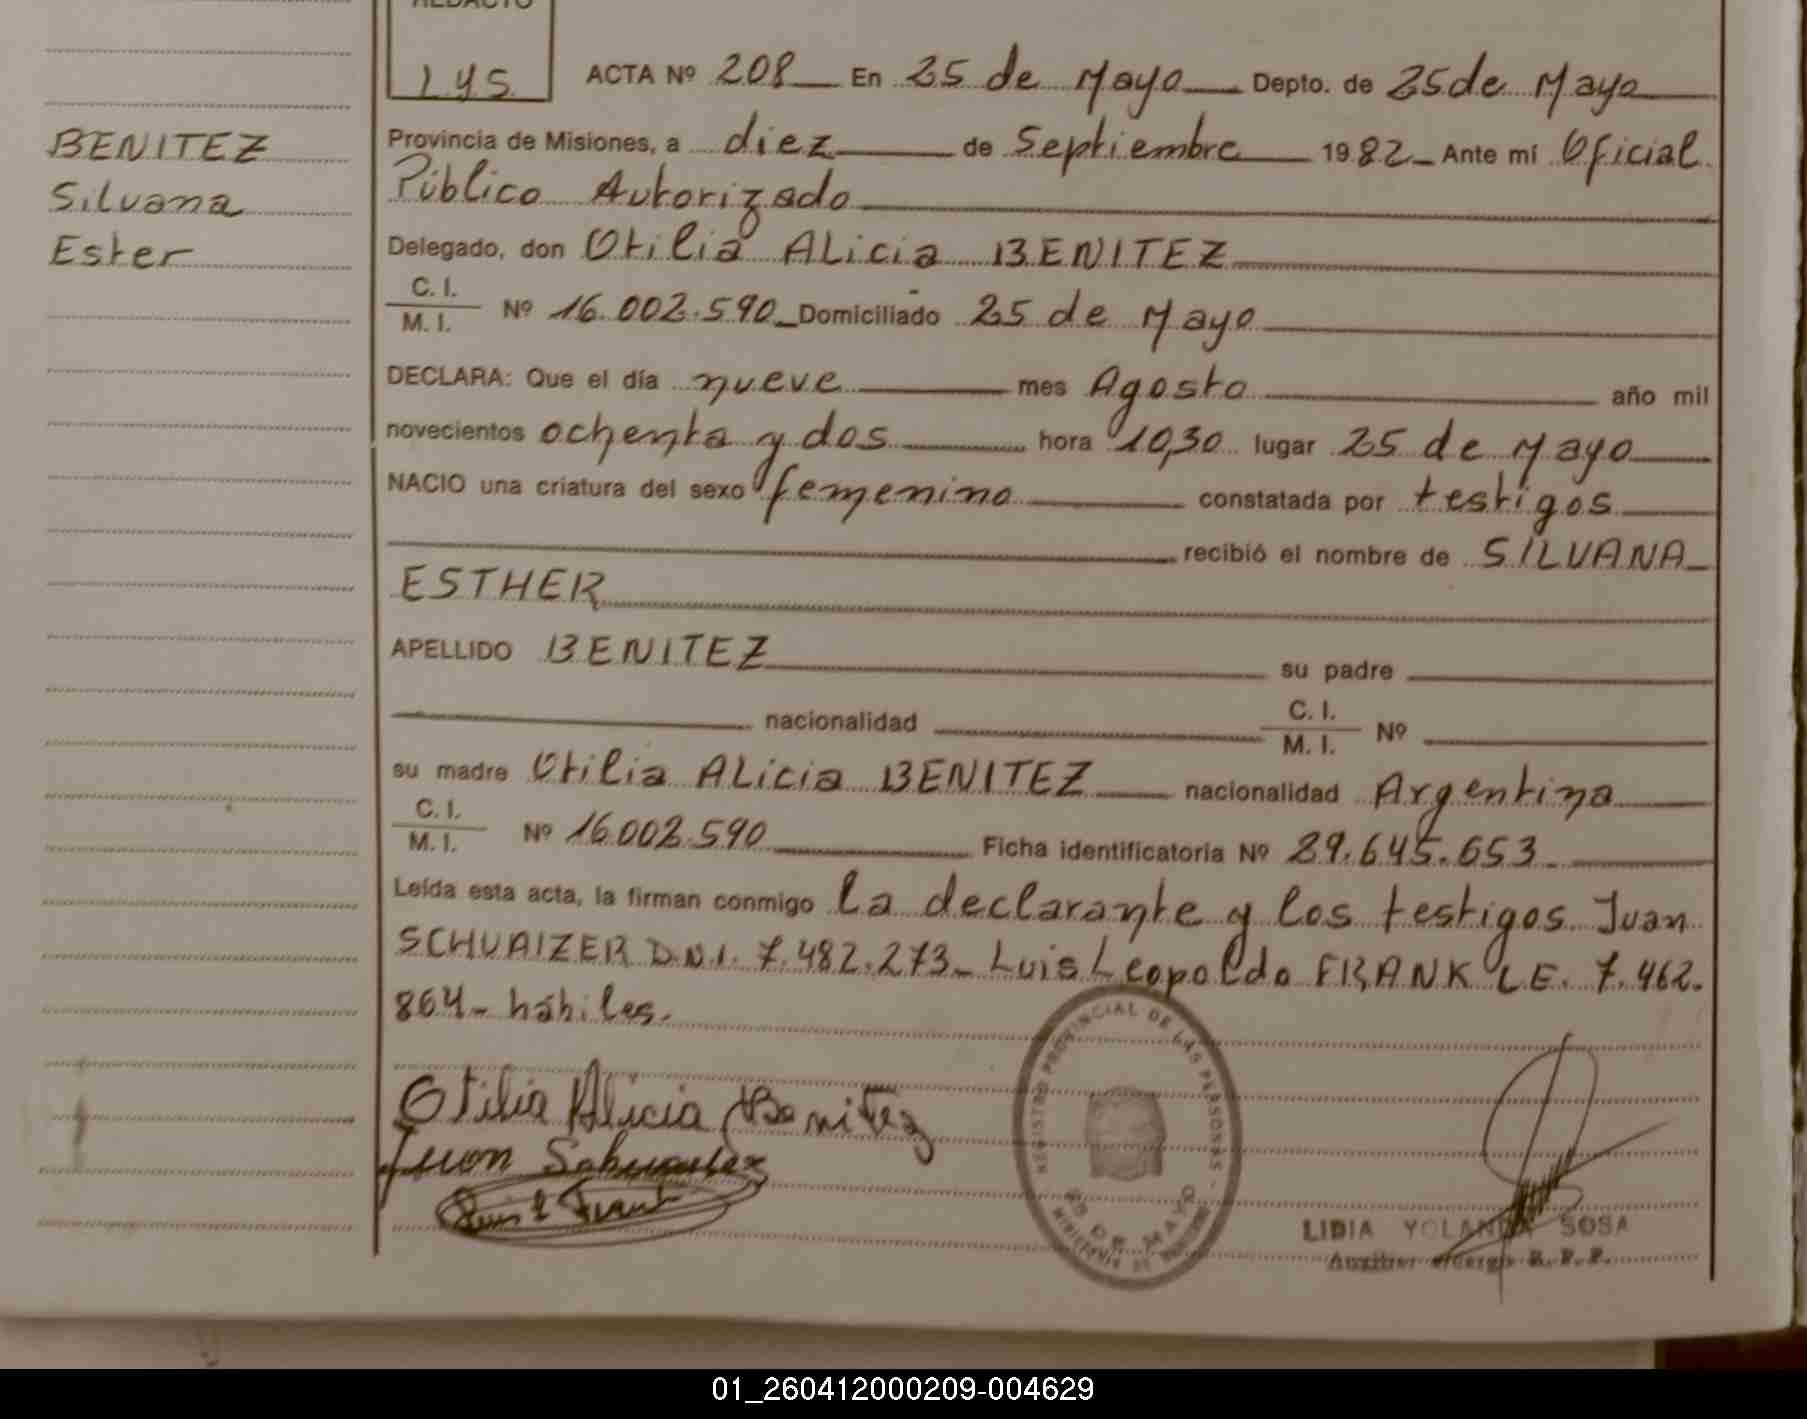 REDACTO
L.Y.S.
ACTA Nº 208 En 25 de Mayo Depto. de 25 de Mayo
BENITEZ
Silvana
Ester
Provincia de Misiones, a diez de Septiembre 1982 Ante mí Oficial
Público Autorizado
Delegado, don Otilia Alicia BENITEZ
C. I.
M. I. Nº 16.002.590 Domiciliado 25 de Mayo
DECLARA: Que el día nueve mes Agosto año mil
novecientos ochenta y dos hora 10,30 lugar 25 de Mayo
NACIO una criatura del sexo femenino constatada por testigos
recibió el nombre de SILVANA
ESTHER
APELLIDO BENITEZ su padre
nacionalidad C. I. M. I. Nº
su madre Otilia Alicia BENITEZ nacionalidad Argentina
C. I.
M. I. Nº 16.002.590 Ficha identificatoria Nº 29.645.653
Leída esta acta, la firman conmigo la declarante y los testigos Juan
SCHUAIZER D.N.I. 7.482.273 - Luis Leopoldo FRANK L.E. 7.462.
864 - hábiles.
Otilia Alicia Benitez
Juan
Luis L Frank
REGISTRO PROVINCIAL DE LAS PERSONAS
25 DE MAYO
MINISTERIO DE
LIDIA YOLANDA SOSA
R.P.P.
01_260412000209-004629